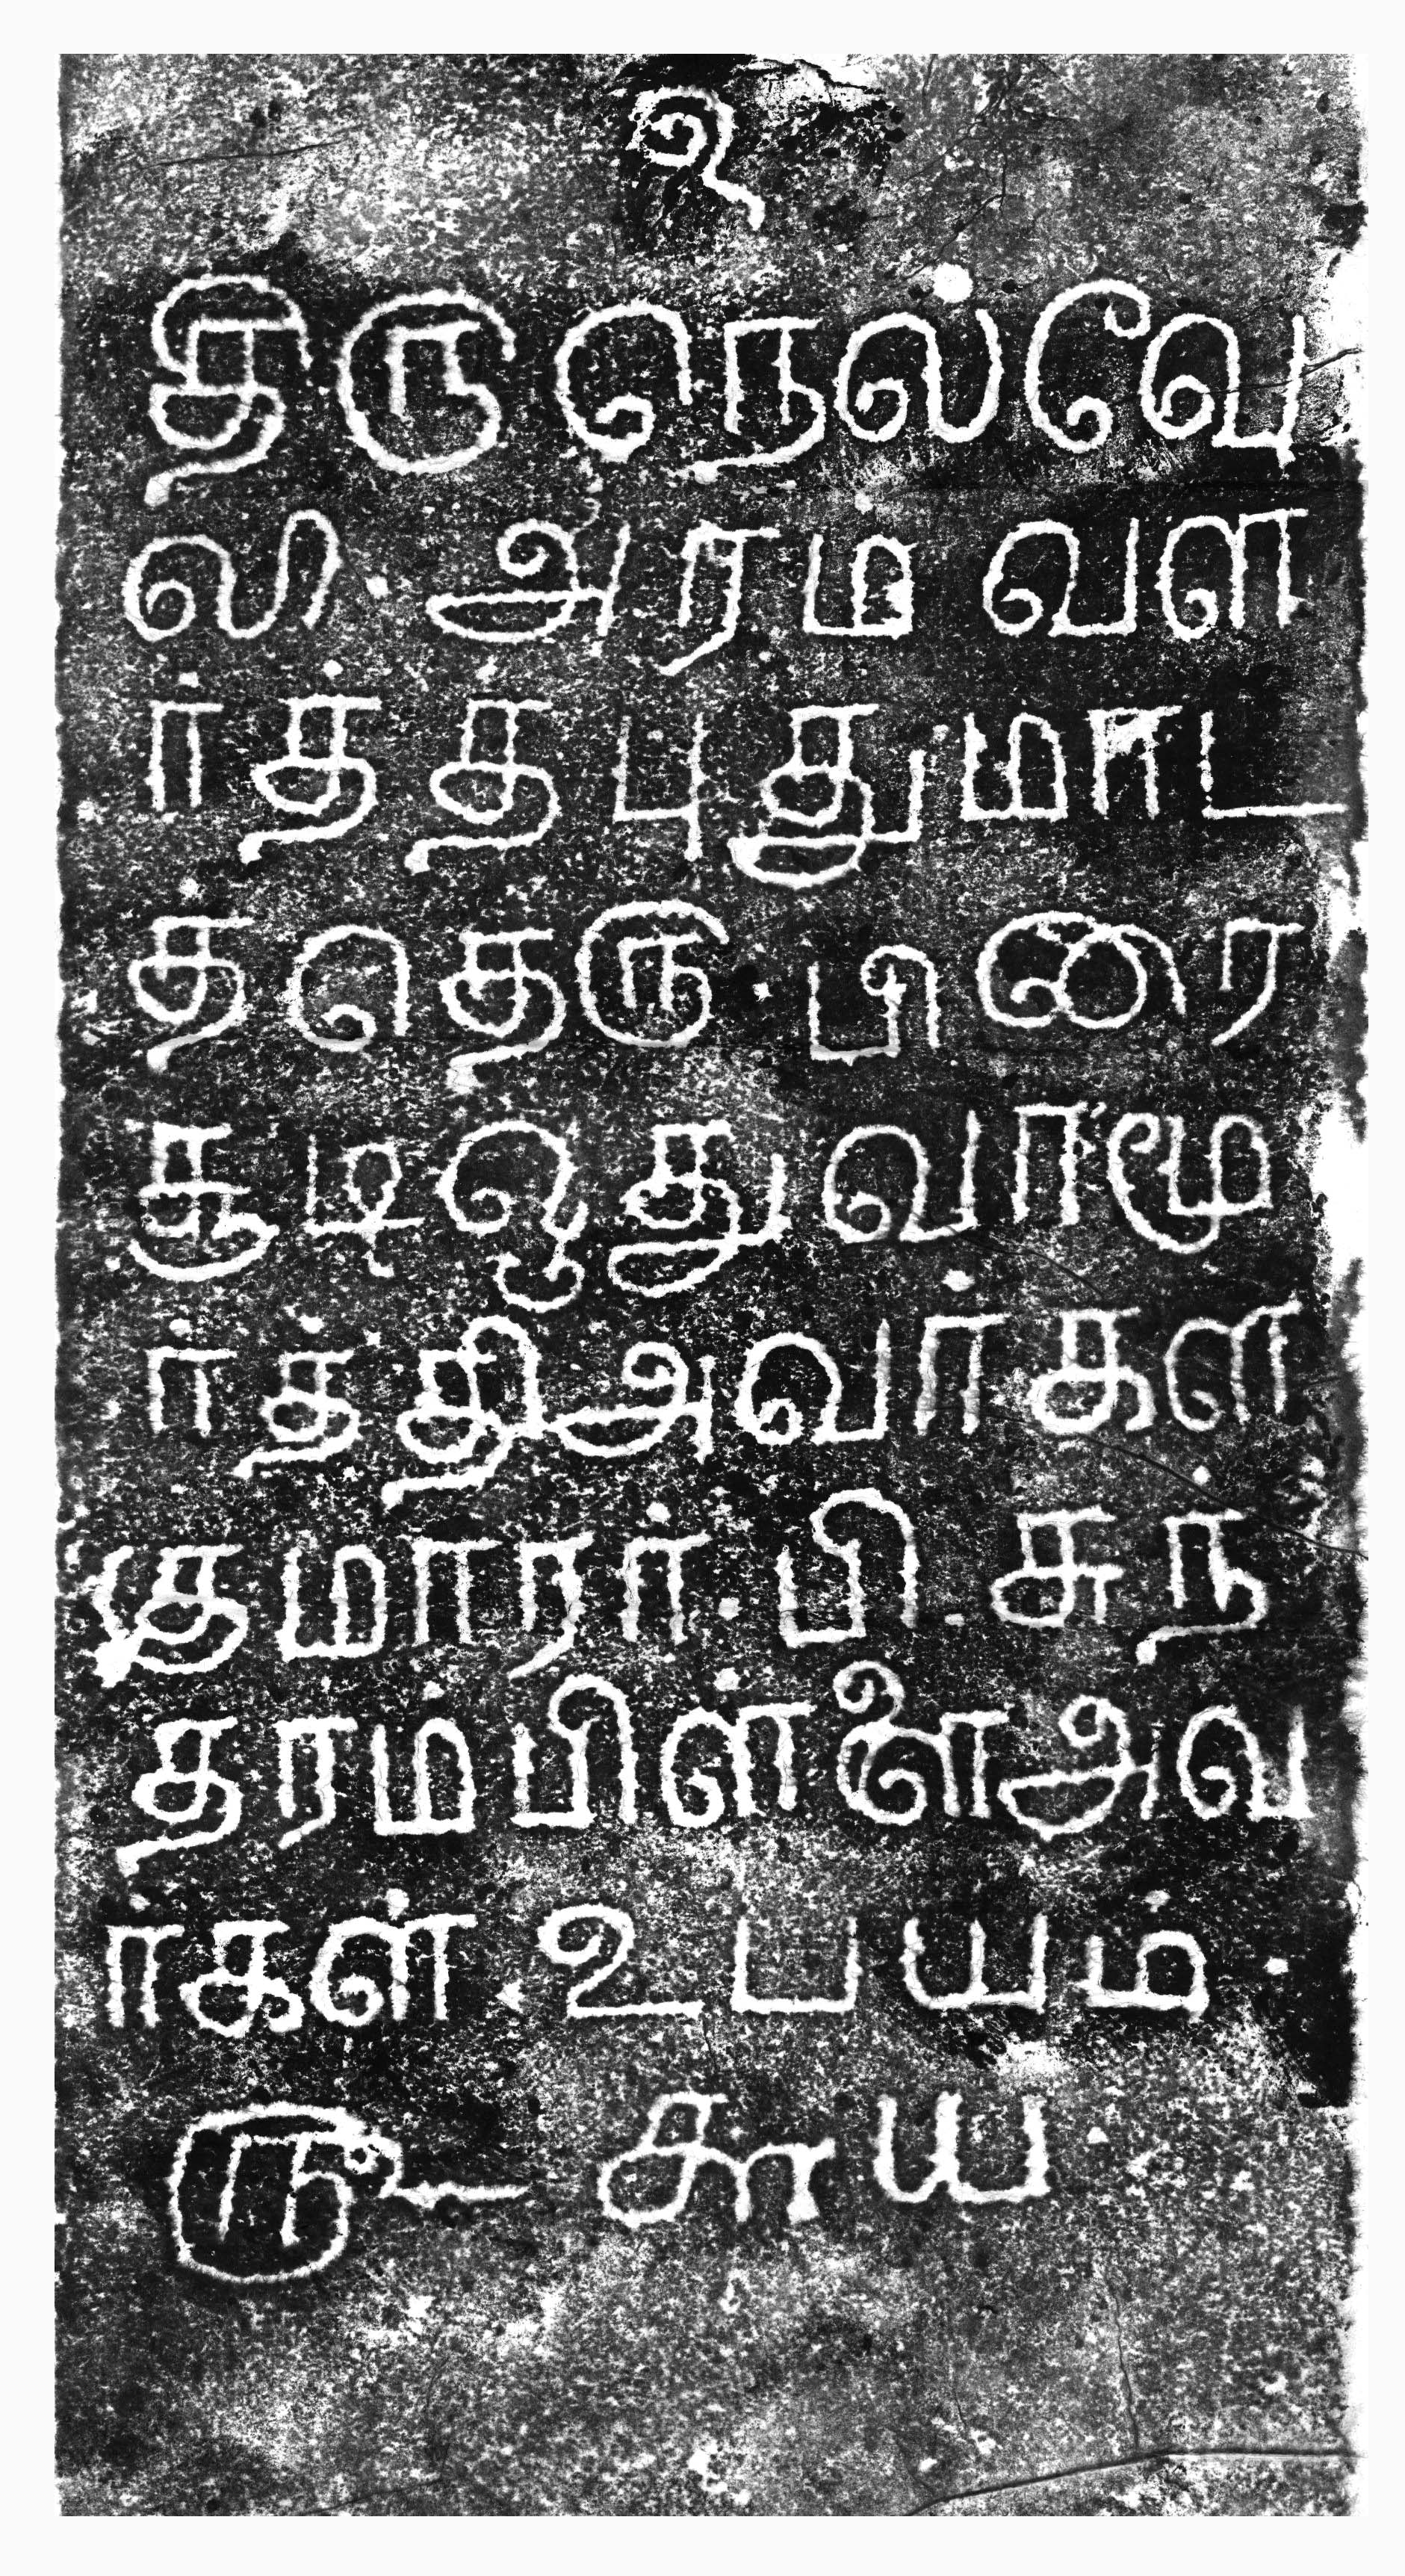 உ
திருநெல்வே
லி. அரம வள
ர்த்த புதுமாட
த்தெரு. பிறை
குடிஒதுவாமூ
ர்த்திஅவர்கள்
குமாரர். பி. சுந்
தரம்பிள்ளைஅவ
ர்கள். உபயம்.
௹ காய